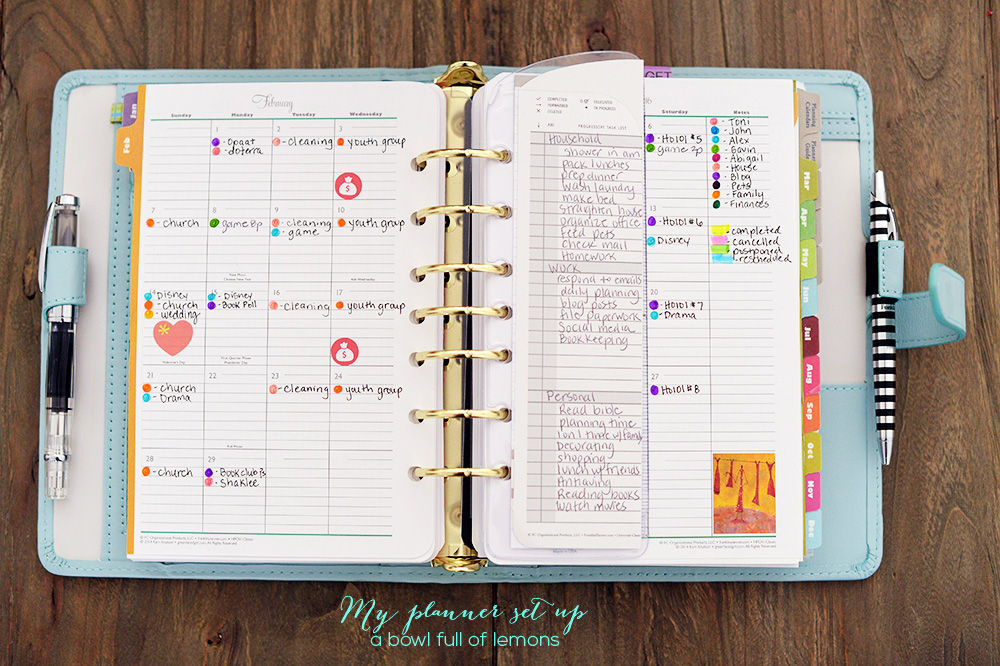 February
Sunday Monday Tuesday Wednesday
1 2 3
- Opaat
- doterra
- cleaning
- youth group
7 8 9 10
- church
- Game 8p
- cleaning
- game
- youth group
New Moon
Chinese New Year
Ash Wednesday
14 15 16 17
- Disney
- church
- wedding
- Disney
- Book Pell
- cleaning
- youth group
Valentine's Day
First Quarter Moon
Presidents' Day
21 22 23 24
- church
- Drama
- cleaning
- youth group
Full Moon
28 29
- church
- Bookclub 7:
- Shaklee
Jan
Feb
COMPLETED
FORWARDED
DELETED
DELEGATED
IN PROGRESS
ABC PROGRESSIVE TASK LIST
Household
Shower in am
pack lunches
prep dinner
wash laundry
make bed
straighten house
organize office
feed pets
check mail
Homework
Work
respond to emails
daily planning
blog posts
file paperwork
Social media
Bookkeeping
Personal
Read bible
planning time
1 on 1 time w/family
Decorating
shopping
lunch w/friends
Antiquing
Reading books
Watch movies
GET
16
Saturday Notes
6
- Ho101 #5
- Game 2p
- Toni
- John
- Alex
- Gavin
- Abigail
- House
- Blog
- Pets
- Family
- Finances
13
- Ho101 #6
- Disney
- completed
- cancelled
- postponed
- rescheduled
20
- Ho101 #7
- Drama
27
- Ho101 #8
Planning
Calendars
Planner
Guide
Mar
Apr
May
Jun
Jul
Aug
Sep
Oct
Nov
Dec
My planner set up
a bowl full of lemons